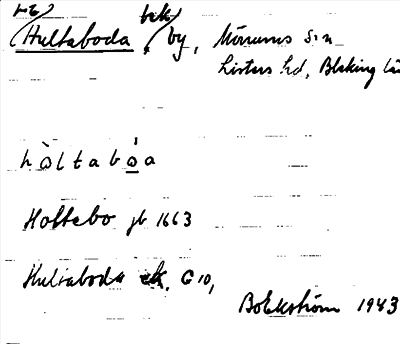 Hultaboda, by, Mörrums sn
Listers hd, Bleking lä
hòltabóa
Holtebo jb 1663
Hultaboda ek. G 10,
Bo Ekström 1943